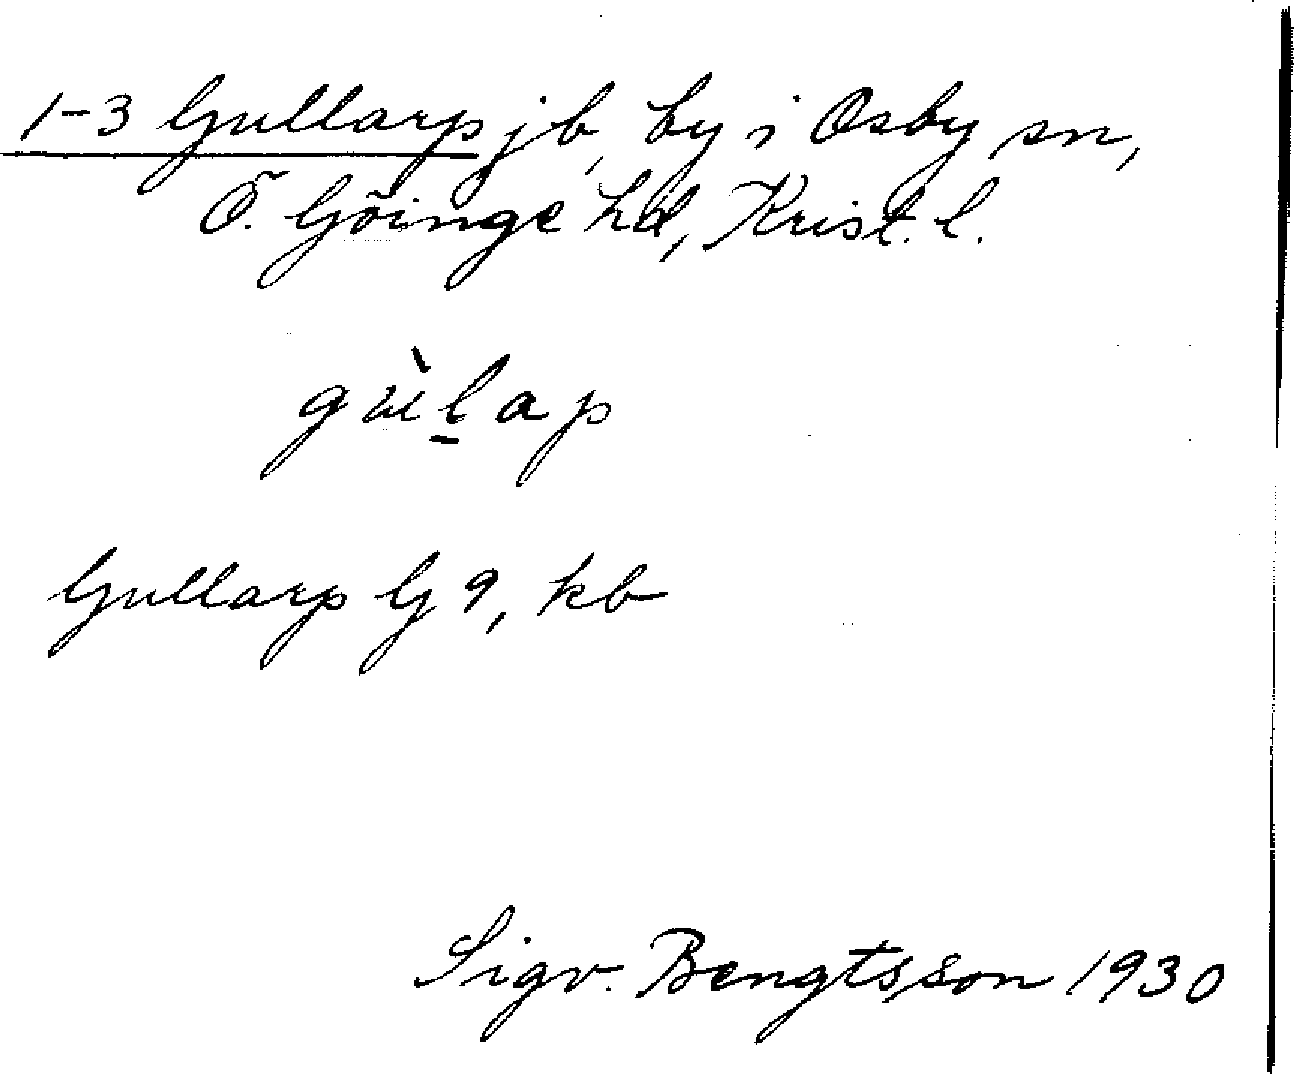 1-3 Gullarp jb, by i Osby sn,
Ö. Göinge hd, Krist. l.
gùl̠ap
Gullarp G 9, kb
Sigv. Bengtsson 1930